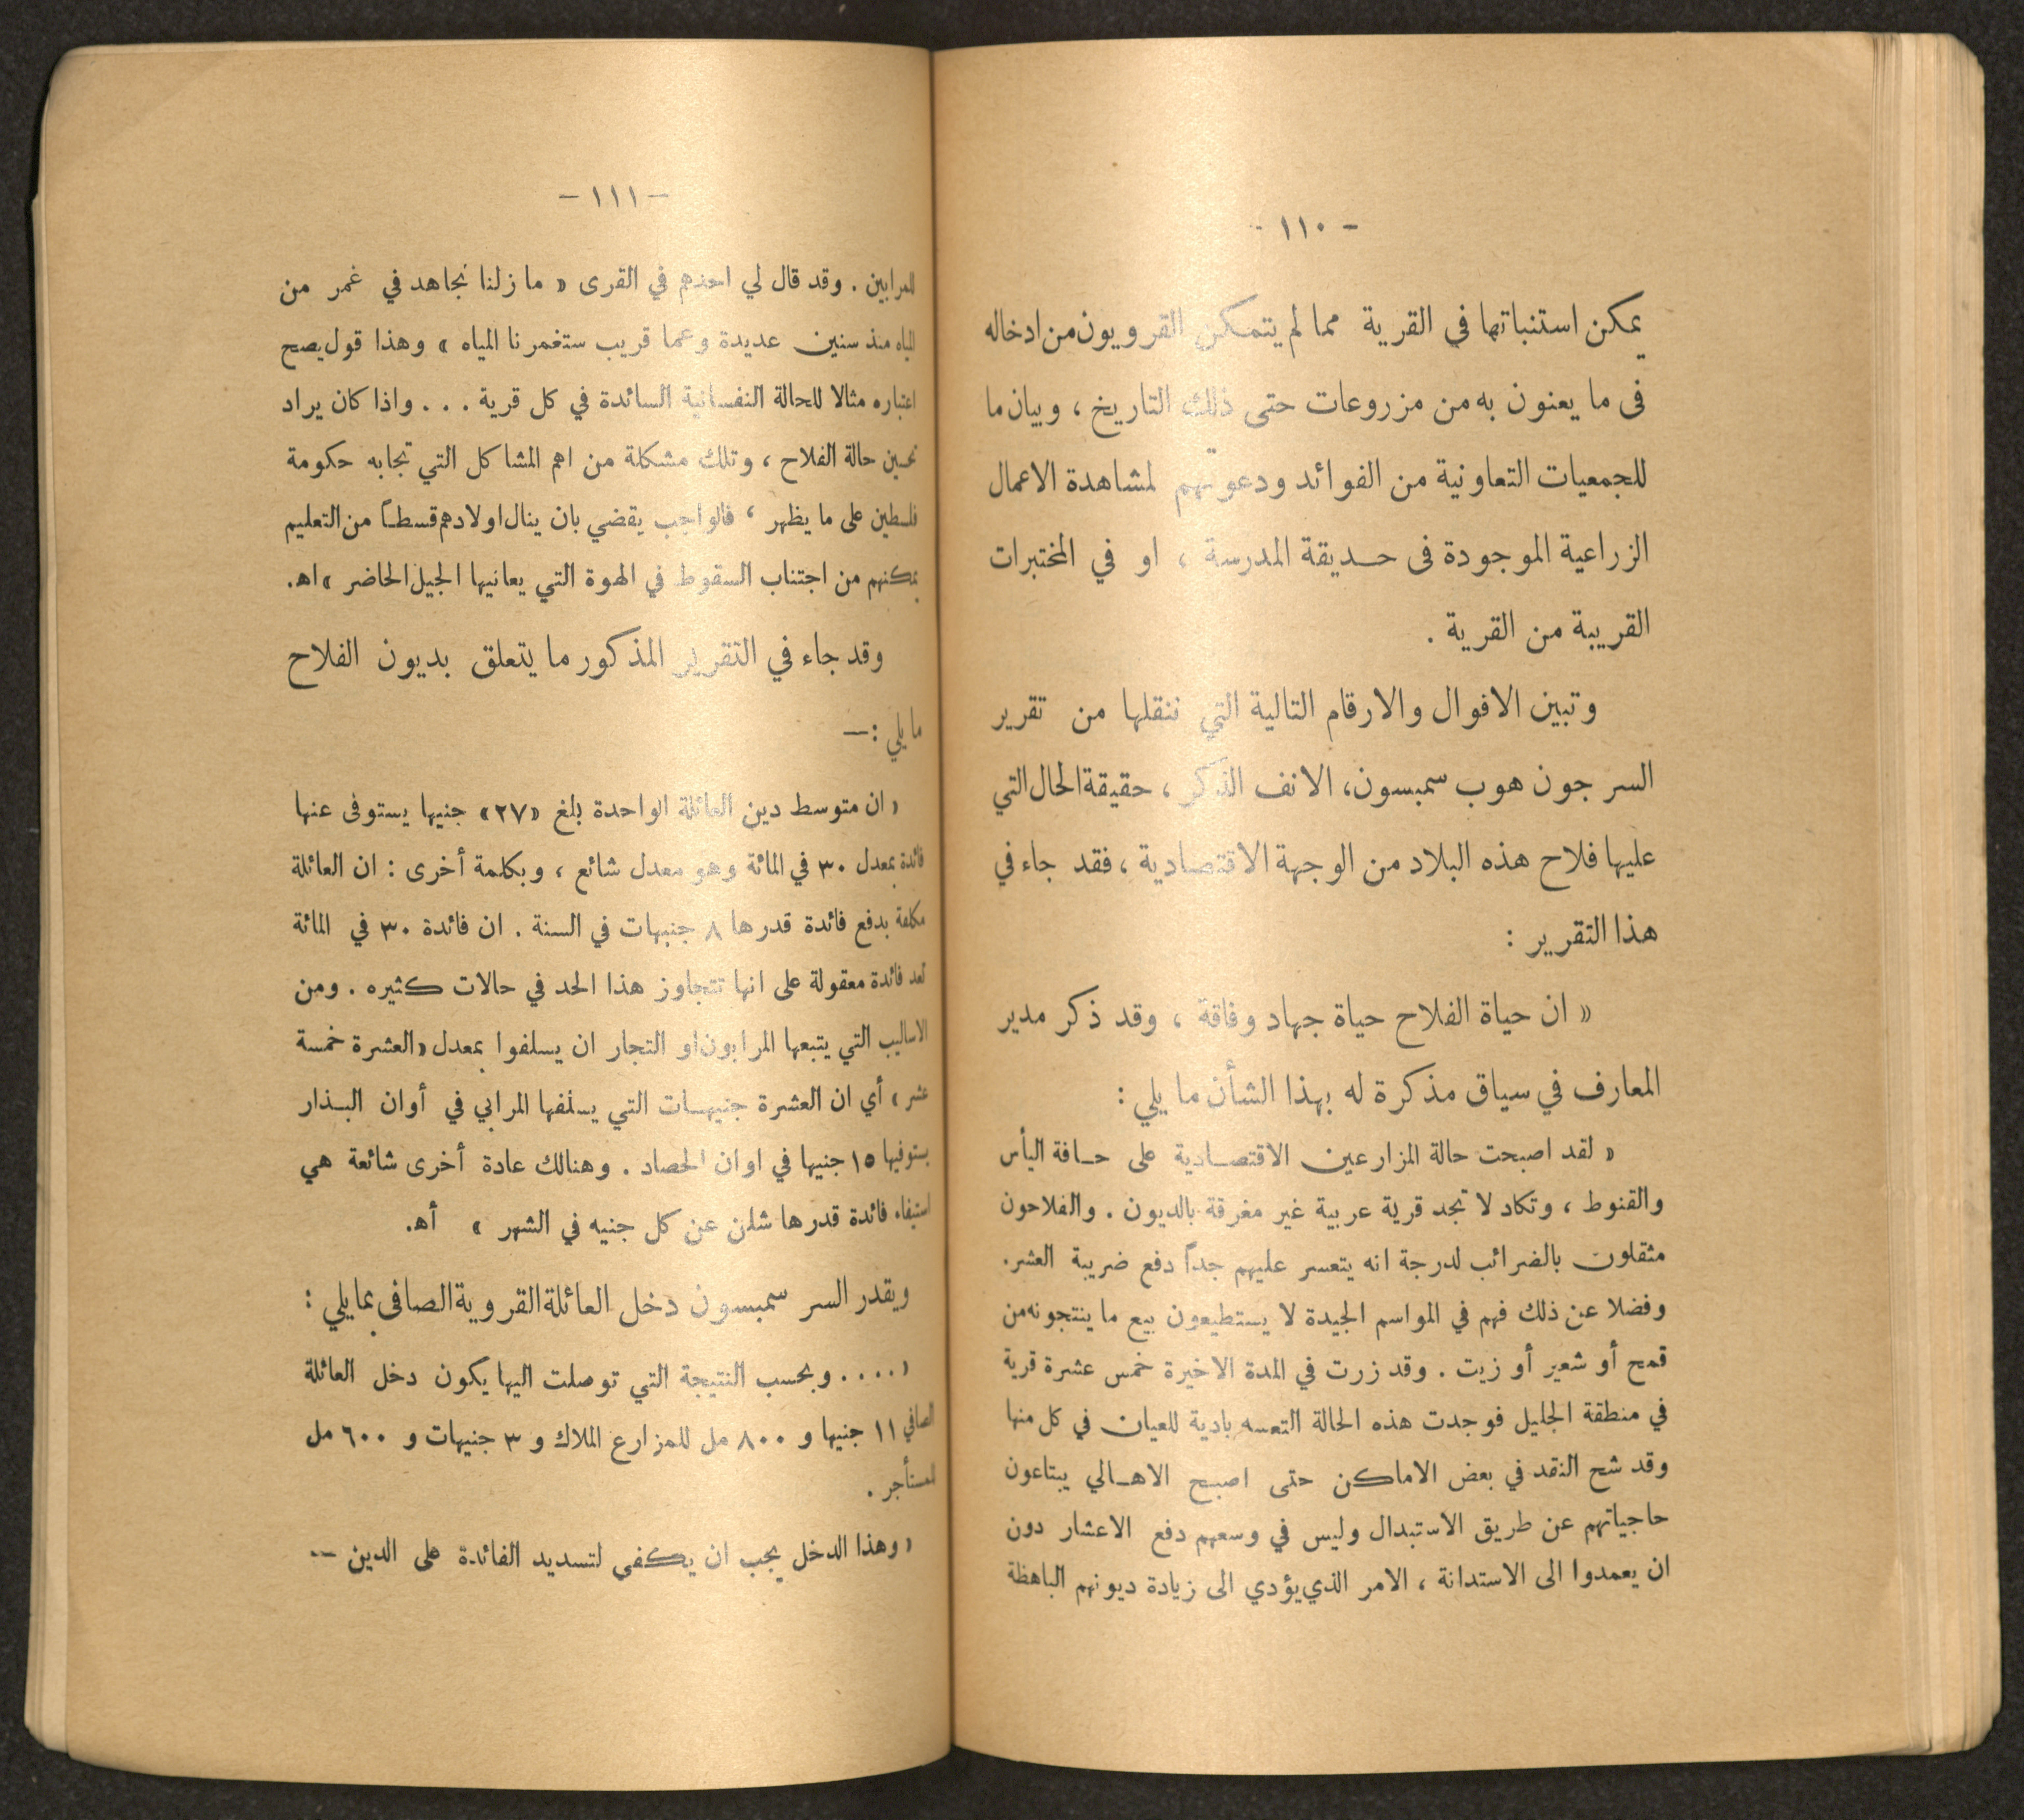 - ١١٠ -
يمكن استنباتها في القرية مما لم يتمكن القرويون من ادخاله
فى ما يعنون به من مزروعات حتى ذلك التاريخ ، وبيان ما
للجمعيات التعاونية من الفوائد ودعوتهم لمشاهدة الاعمال
الزراعية الموجودة فى حـديقة المدرسة ، او في المختبرات
القريبة من القرية .
وتبين الاقوال والارقام التالية التي ننقلها من تقرير
السر جون هوب سمبسون، الانف الذكر ، حقيقة الحال التي
عليها فلاح هذه البلاد من الوجهة الاقتصادية ، فقد جاء في
هذا التقرير :
« ان حياة الفلاح حياة جهاد وفاقة ، وقد ذكر مدير
المعارف في سياق مذكرة له بهذا الشأن ما يلي :
« لقد اصبحت حالة المزارعين الاقتصـادية على حـافة اليأس
والقنوط ، وتكاد لا تجد قرية عربية غير مغرقة بالديون . والفلاحون
مثقلون بالضرائب لدرجة انه يتعسر عليهم جداً دفع ضريبة العشر.
وفضلا عن ذلك فهم في المواسم الجيدة لا يستطيعون بيع ما ينتجونه من
قمح أو شعير أو زيت . وقد زرت في المدة الاخيرة خمس عشرة قرية
في منطقة الجليل فوجدت هذه الحالة التعسه بادية للعيان في كل منها
وقد شح النقد في بعض الاماكن حتى اصبح الاهـالي يبتاعون
حاجياتهم عن طريق الاستبدال وليس في وسعهم دفع الاعشار دون
ان يعمدوا الى الاستدانة ، الامر الذي يؤدي الى زيادة ديونهم الباهظة
- ١١١ -
للمرابين . وقد قال لي احدهم في القرى « ما زلنا نجاهد في غمر من
المياه منذ سنين عديدة وعما قريب ستغمرنا المياه » وهذا قول يصح
اعتباره مثالا للحالة النفسانية السائدة في كل قرية . . . واذا كان يراد
تحسين حالة الفلاح ، وتلك مشكلة من اهم المشاكل التي تجابه حكومة
فلسطين على ما يظهر ، فالواجب يقضي بان ينال اولادهم قسطـاً من التعليم
يمكنهم من اجتناب السقوط في الهوة التي يعانيها الجيل الحاضر » اه.
وقد جاء في التقرير المذكور ما يتعلق بديون الفلاح
ما يلي :—
« ان متوسط دين العائلة الواحدة بلغ «٢٧» جنيها يستوفى عنها
فائدة بمعدل ٣٠ في المائة وهو معدل شائع ، وبكلمة أخرى : ان العائلة
مكلفة بدفع فائدة قدرها ٨ جنيهات في السنة . ان فائدة ٣٠ في المائة
تعد فائدة معقولة على انها تتجاوز هذا الحد في حالات كثيره . ومن
الاساليب التي يتبعها المرابون او التجار ان يسلفوا بمعدل «العشرة خمسة
عشر » أي ان العشرة جنيهـات التي يسلفها المرابي في أوان البـذار
يستوفيها ١٥ جنيها في اوان الحصاد . وهنالك عادة أخرى شائعة هي
استيفاء فائدة قدرها شلن عن كل جنيه في الشهر » أه.
ويقدر السر سمبسون دخل العائلة القروية الصافى بما يلي :
« . . . . وبحسب النتيجة التي توصلت اليها يكون دخل العائلة
الصافي ١١ جنيها و ٨٠٠ مل للمزارع الملاك و ٣ جنيهات و ٦٠٠ مل
للمستأجر .
« وهذا الدخل يجب ان يكفي لتسديد الفائدة على الدين —